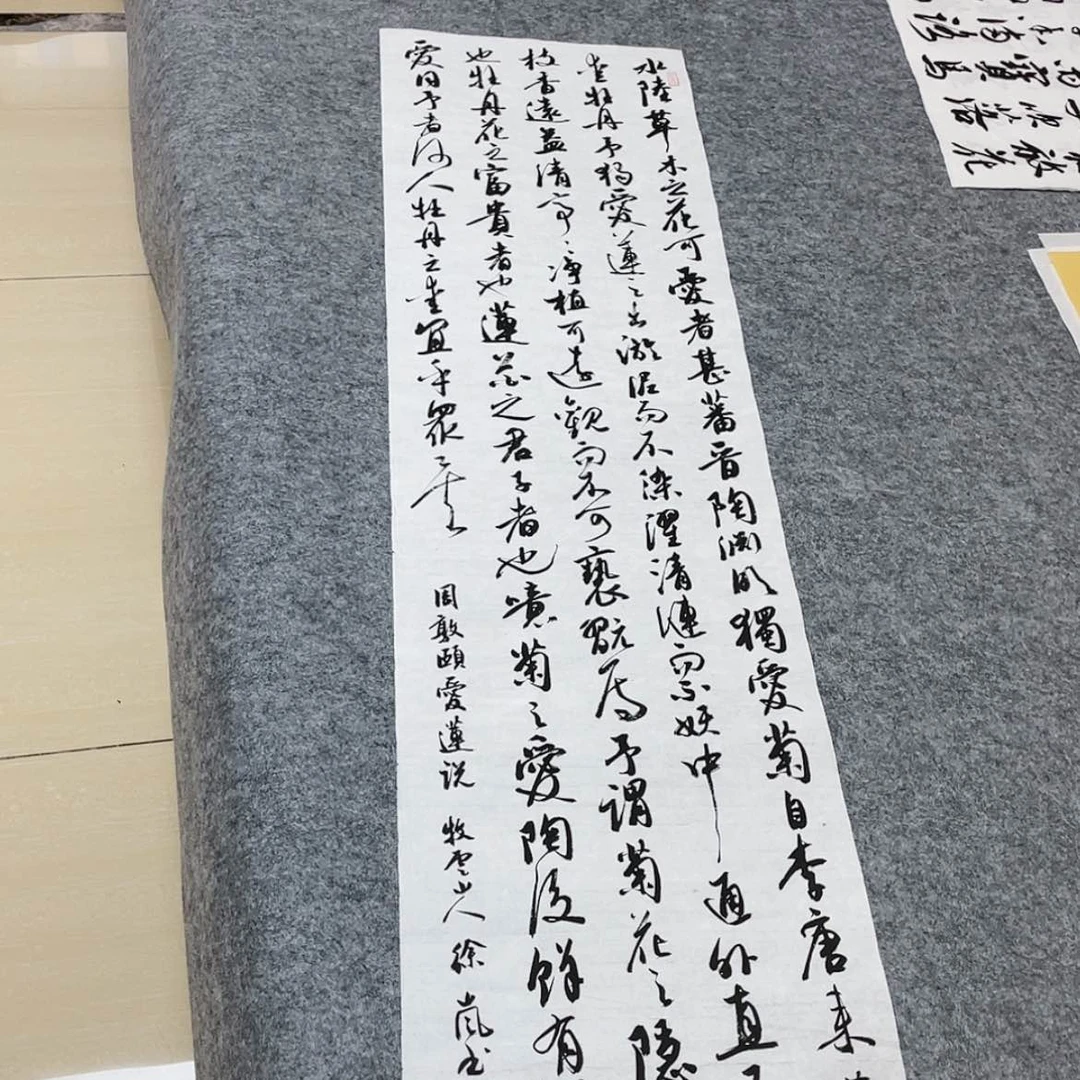 水陸草木之花可愛者甚蕃晋陶渊明獨愛菊自李唐来
爱牡丹予独愛蓮之出淤泥而不染濯清漣而不妖中通外直
枝香遠益清亭〻净植可遠觀而不可褻翫焉予謂菊花之隱
也牡丹花之富貴者也蓮花之君子者也噫菊之愛陶後鮮有
愛同予者何人牡丹之爱宜乎眾矣
周敦頤愛蓮説 牧雲山人 徐嵐书